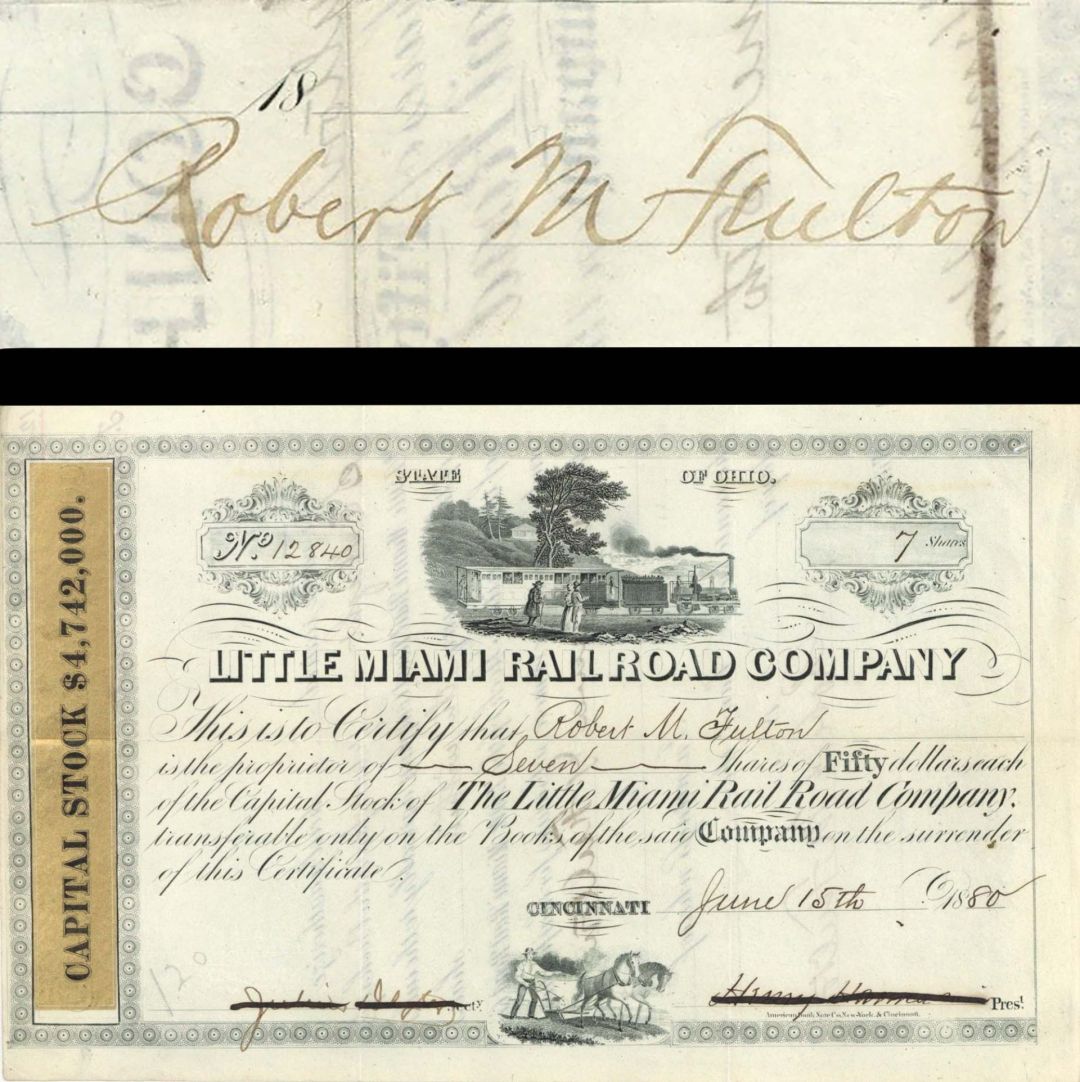 18
Robert M Fulton
STATE OF OHIO.
No 12840
7 Shares
CAPITAL STOCK $4,742,000.
LITTLE MIAMI RAILROAD COMPANY
This is to Certify that Robert M. Fulton
is the proprietor of Seven Shares of Fifty dollars each
of the Capital Stock of The Little Miami Rail Road Company,
transferable only on the Books of the said Company on the surrender
of this Certificate.
CINCINNATI June 15th 1880
Henry Prest
American Bank Note Co. New-York & Cincinnati.